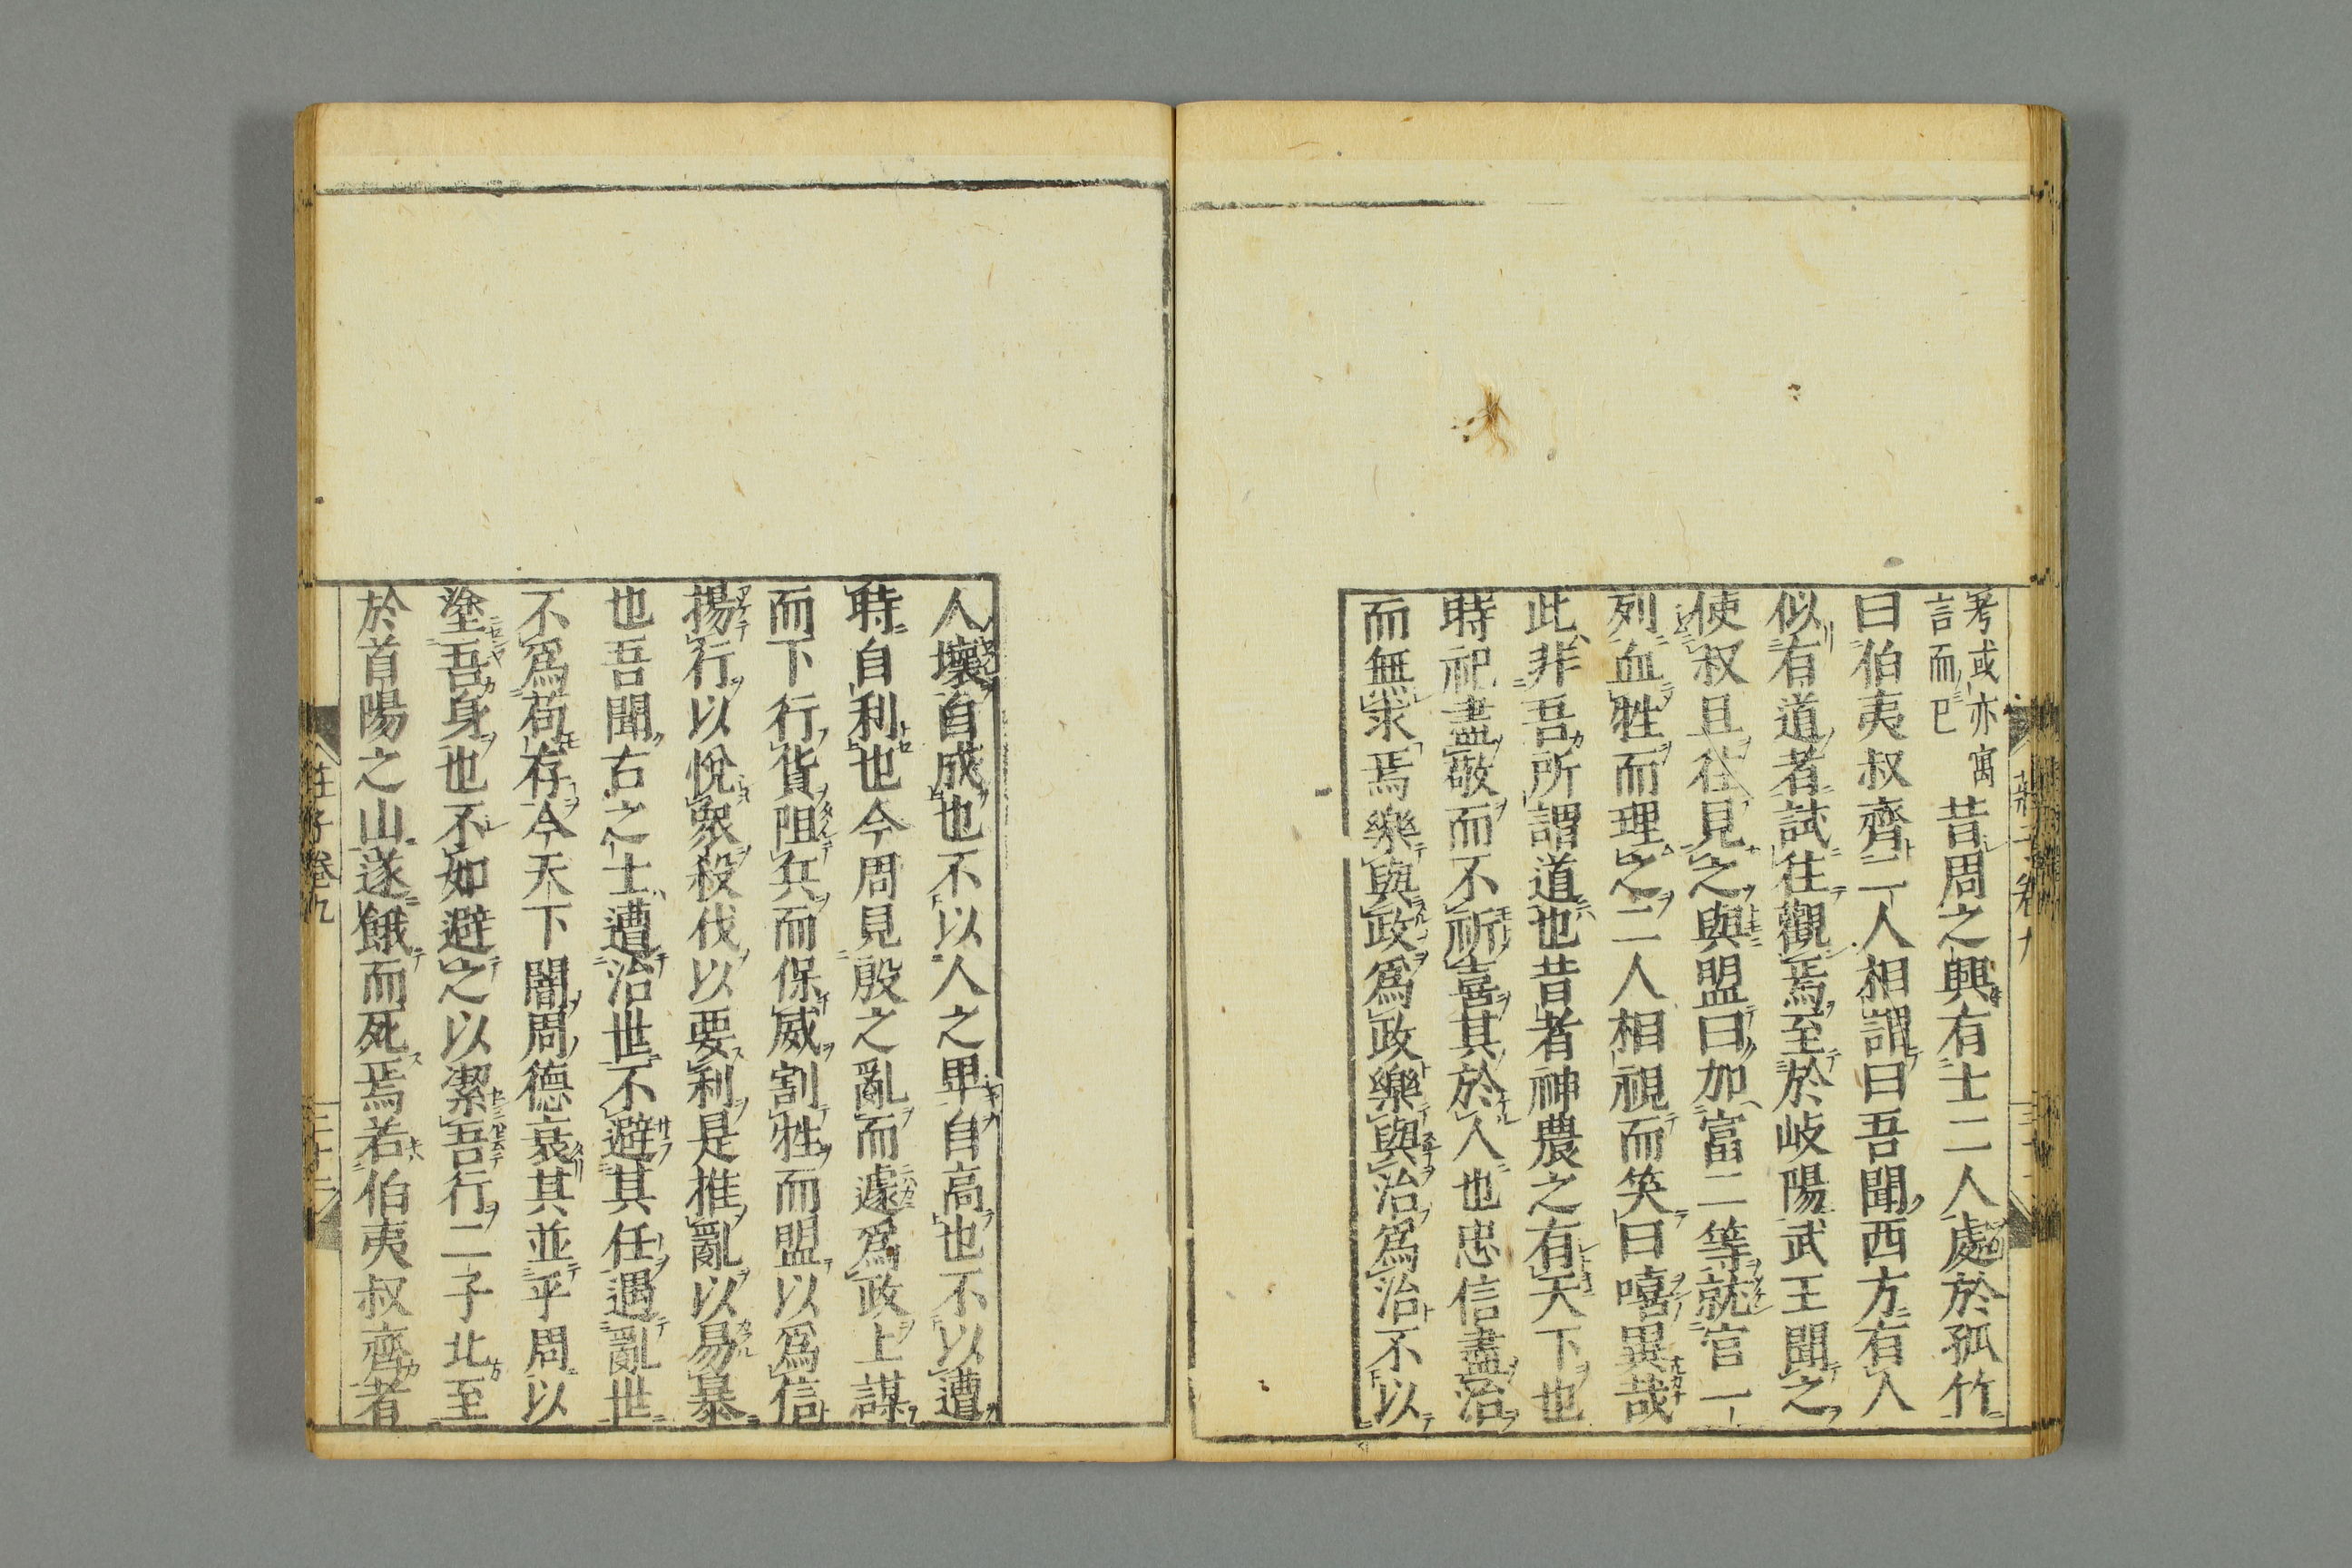 考或亦寓
言而已
昔周之興有士二人處於孤竹
曰伯夷叔齊二人相謂曰吾聞西方有人
似有道者試往觀焉至於岐陽武王聞之
使叔且往見之與盟曰加富二等就官一
列血牲而理之二人相視而笑曰嘻異哉
此非吾所謂道也昔者神農之有天下也
時祀盡敬而不祈喜其於人也忠信盡治
而無求焉樂與政爲政樂與治爲治不以
人壞自成也不以人之卑自高也不以遭
時自利也今周見殷之亂而遽爲政上謀
而下行貨阻兵而保威割牲而盟以爲信
揚行以悅衆殺伐以要利是推亂以易暴
也吾聞右之士遭治世不避其任遇亂世
不爲苟存今天下闇周德衰其並乎周以
塗吾身也不如避之以潔吾行二子北至
於首陽之山遂餓而死焉若伯夷叔齊者
莊子卷九
二十二